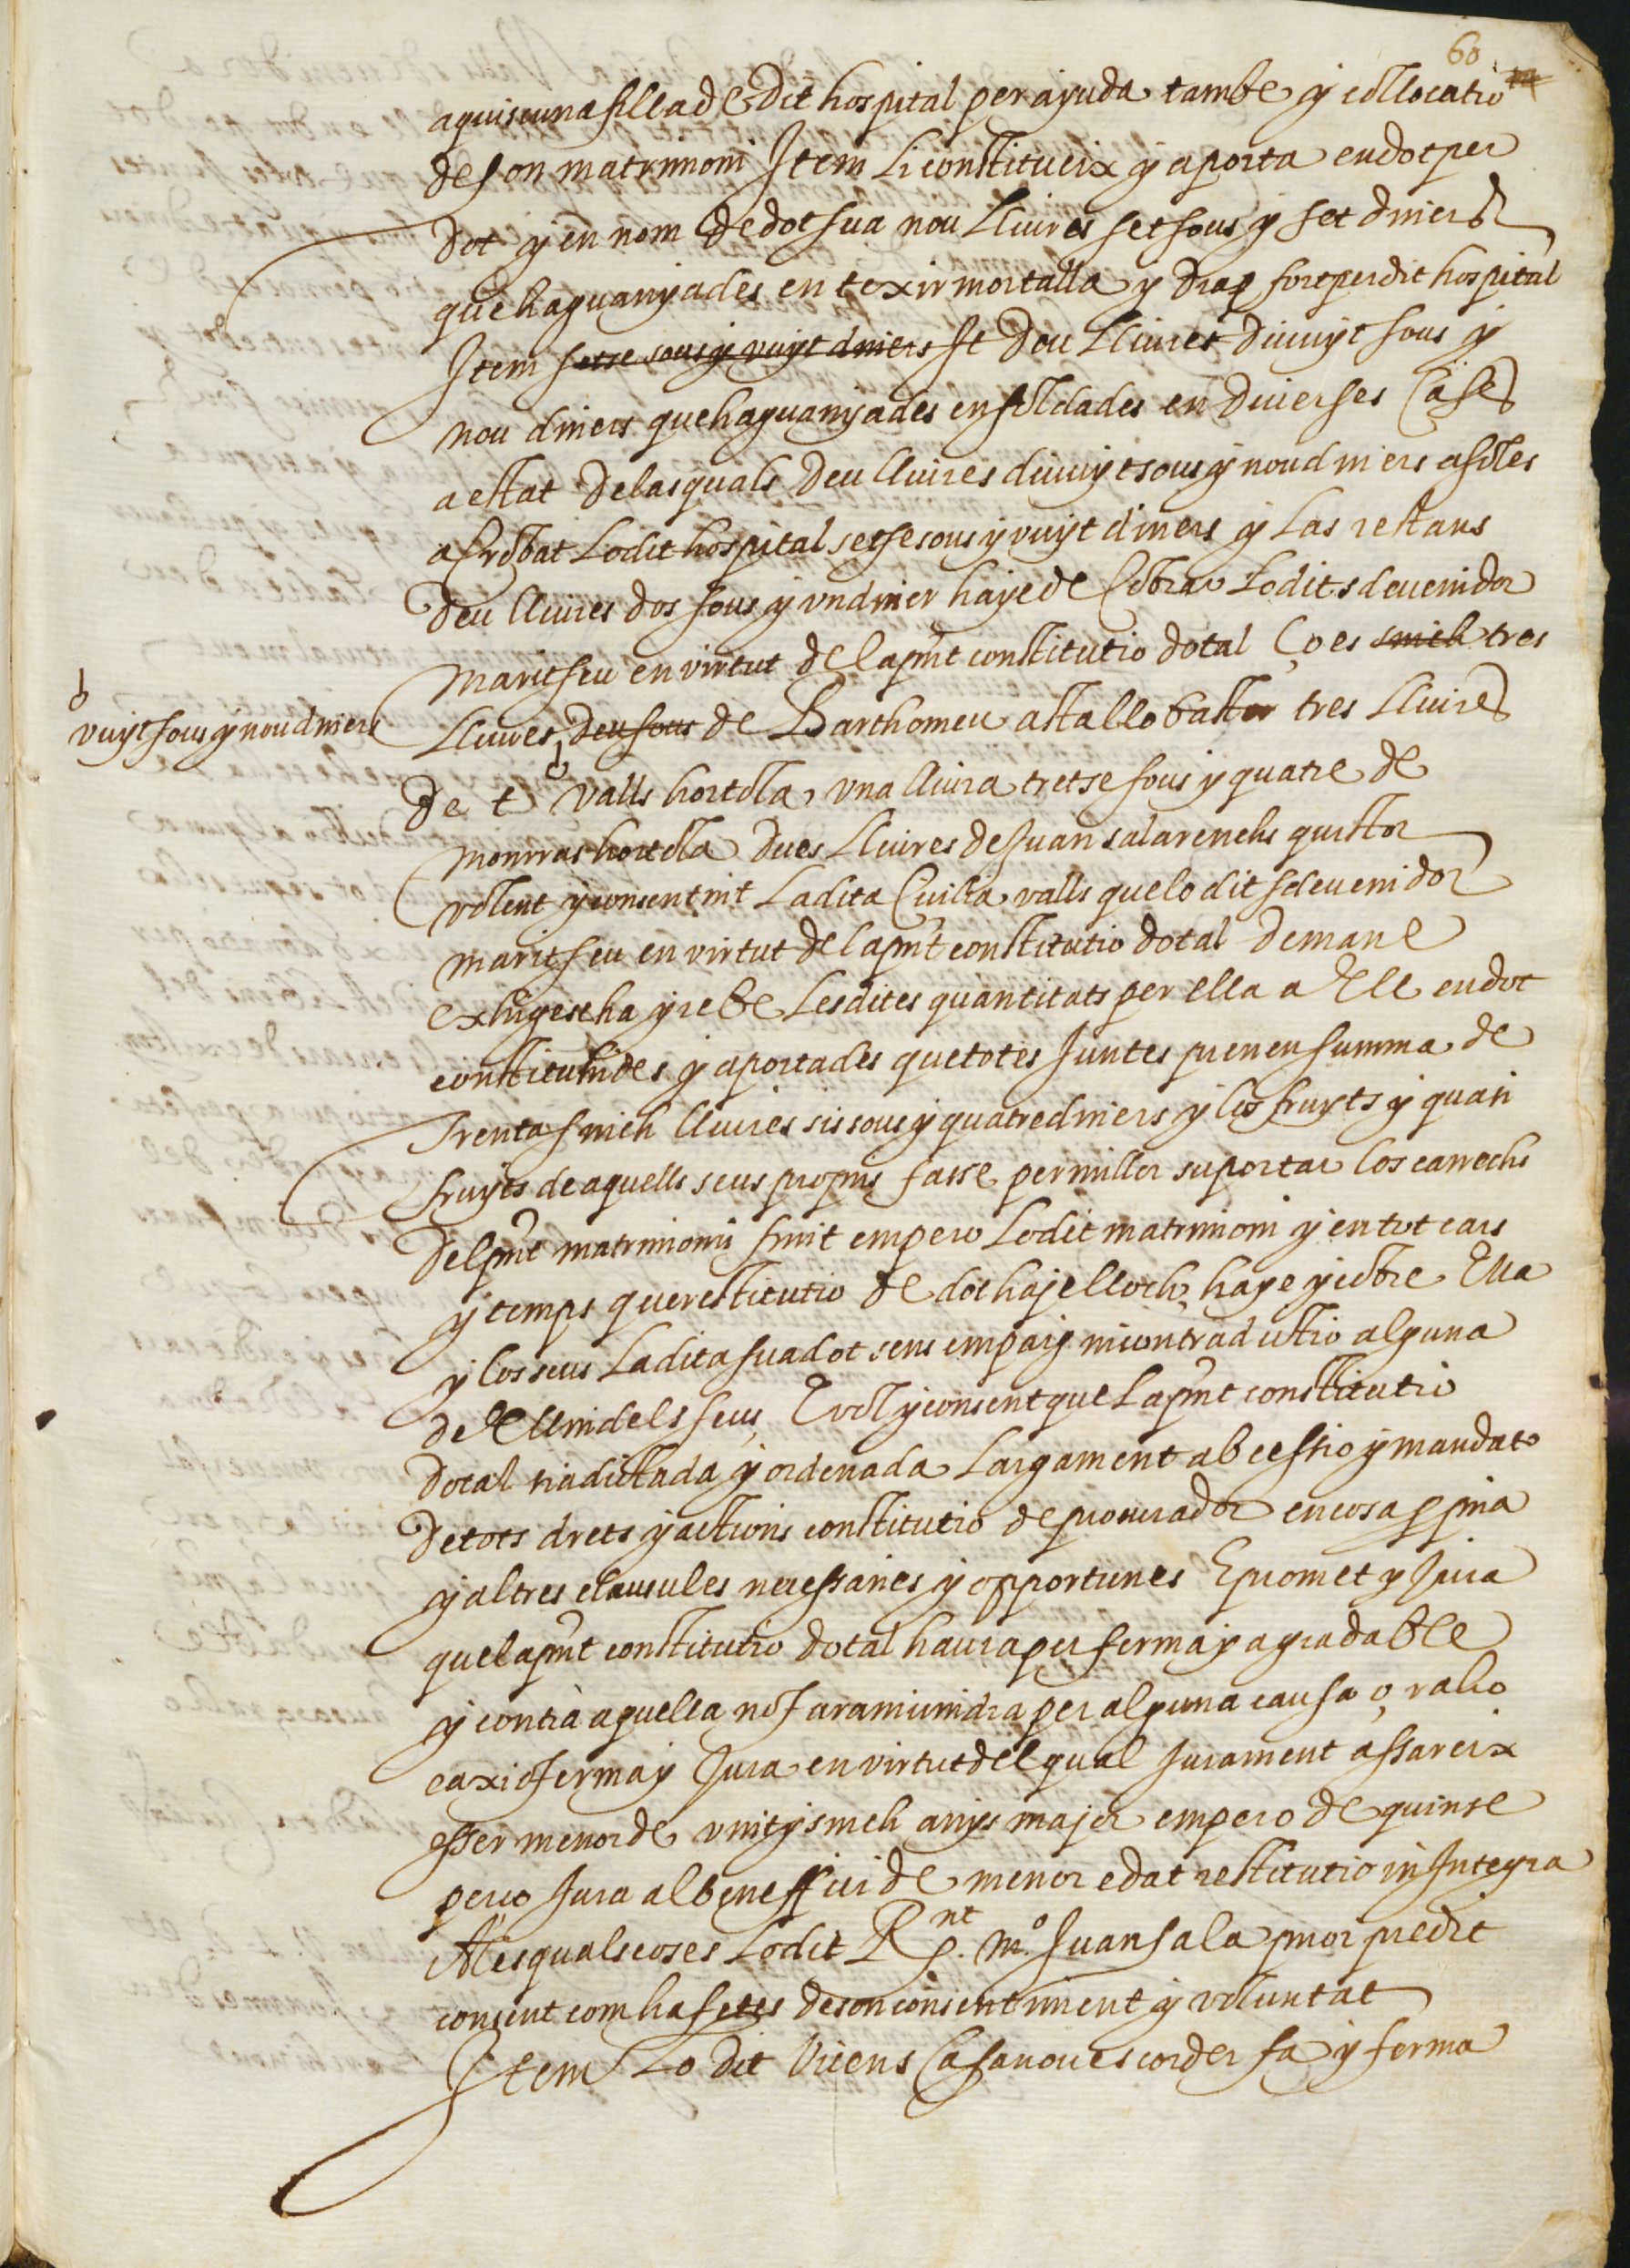 60
aquiscuna filla de dit hospital per ajuda tambe y collocatio
de son matrimoni Item li constitueix y aporta en dot per
dot y en nom de dot sua nou lliures set sous y set diners
que ha guanyades en texir mortalla y drap fort per dit hospital
Item setse sous y vuyt diners It deu lliures divuyt sous y
nou diners que ha guanyades en soldades en diverses cases
a estat de las quals deu lliures divuyt sous y nou diners a soles
a cobrat lo dit hospital setse sous y vuyt diners y las restans
deu lliures dos sous y un diner haje de cobrar lo dit sdevenidor
marit seu en virtut de la pnt constitutio dotal ço es sinch tres
vuyt sous y nou diners
lliures deu sous de Barthomeu astallo baster tres lliures
de t valls hortola, una lliura tretse sous y quatre de
monrras hortola dues lliures de Juan salarenchs quistor
volent y consentint la dita Cicilia valls que lo dit sdevenidor
marit seu en virtut de la pnt constitutio dotal demane
exhigesha y rebe les dites quantitats per ella a Ell en dot
constituhides y aportades que totes juntes prenen summa de
Trenta sinch lliures sis sous y quatre diners y los fruyts y quasi
fruyts de aquells seus propris fasse per millor suportar los carrechs
del pnt matrimoni finit empero lo dit matrimoni y en tot cars
y temps que restitutio de dot haje lloch, haye y cobre Ella
y los seus la dita sua dot sens empaig ni contradictio alguna
de Ell ni dels seus, E vol y consent que la pnt constitutio
dotal sia dictada y ordenada largament ab cessio y mandato
de tots drets y actions constitutio de procurador en cosa ppria
y altres clausules necessaries y opportunes E promet y jura
que la pnt constitutio dotal haura per ferma y agradable
y contra aquella no fara ni vindra per alguna causa o, raho
e axi o ferma y jura en virtut del qual jurament assareix
esser menor de vint y sinch anys major empero de quinse
perço jura al beneffici de menor edat restitutio in integra
A les quals coses lo dit Rnt p. mº Juan sala prior predit
consent com ha fetes de son consentiment y voluntat
Item lo dit Vicens Casanoves corder fa y ferma